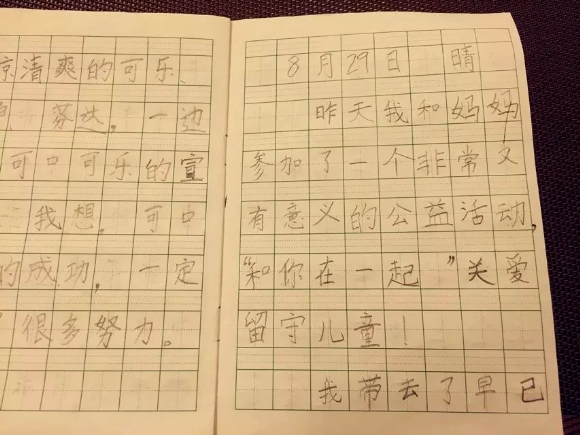 凉清爽的可乐、
芬达，一边
可口可乐的宣
我想，可口
的成功，一定
很多努力。
8月29日 晴
昨天我和妈妈
参加了一个非常又
有意义的公益活动，
“和你在一起”关爱
留守儿童！
我带去了早已